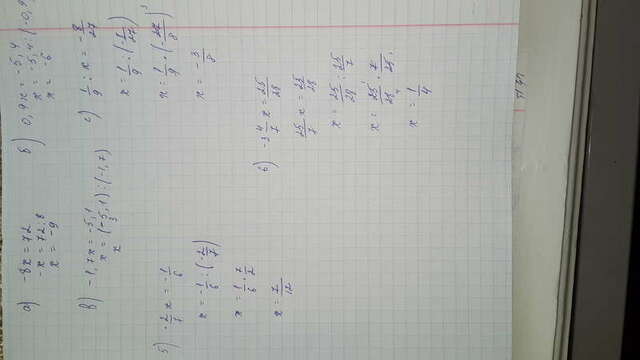 а) -8x = 72
-x = 72:8
x = -9
б) 0,9x = -5,4
x = -5,4:(-0,9
x = -6
в) -1,7x = -5,1
x = (-5,1):(-1,7)
x 3
с) 1/9 : x = -8/27
x = 1/9 : (-8/27)
x = 1/9 · (-27/8)
x = -3/8
5) -2/7 x = -1/6
x = -1/6 : (-2/7)
x = 1/6 · 7/2
x = 7/12
6) -3 4/7 x = 25/28
25/7 x = 25/28
x = 25/28 : 25/7
x = 25/28 · 7/25
x = 1/4